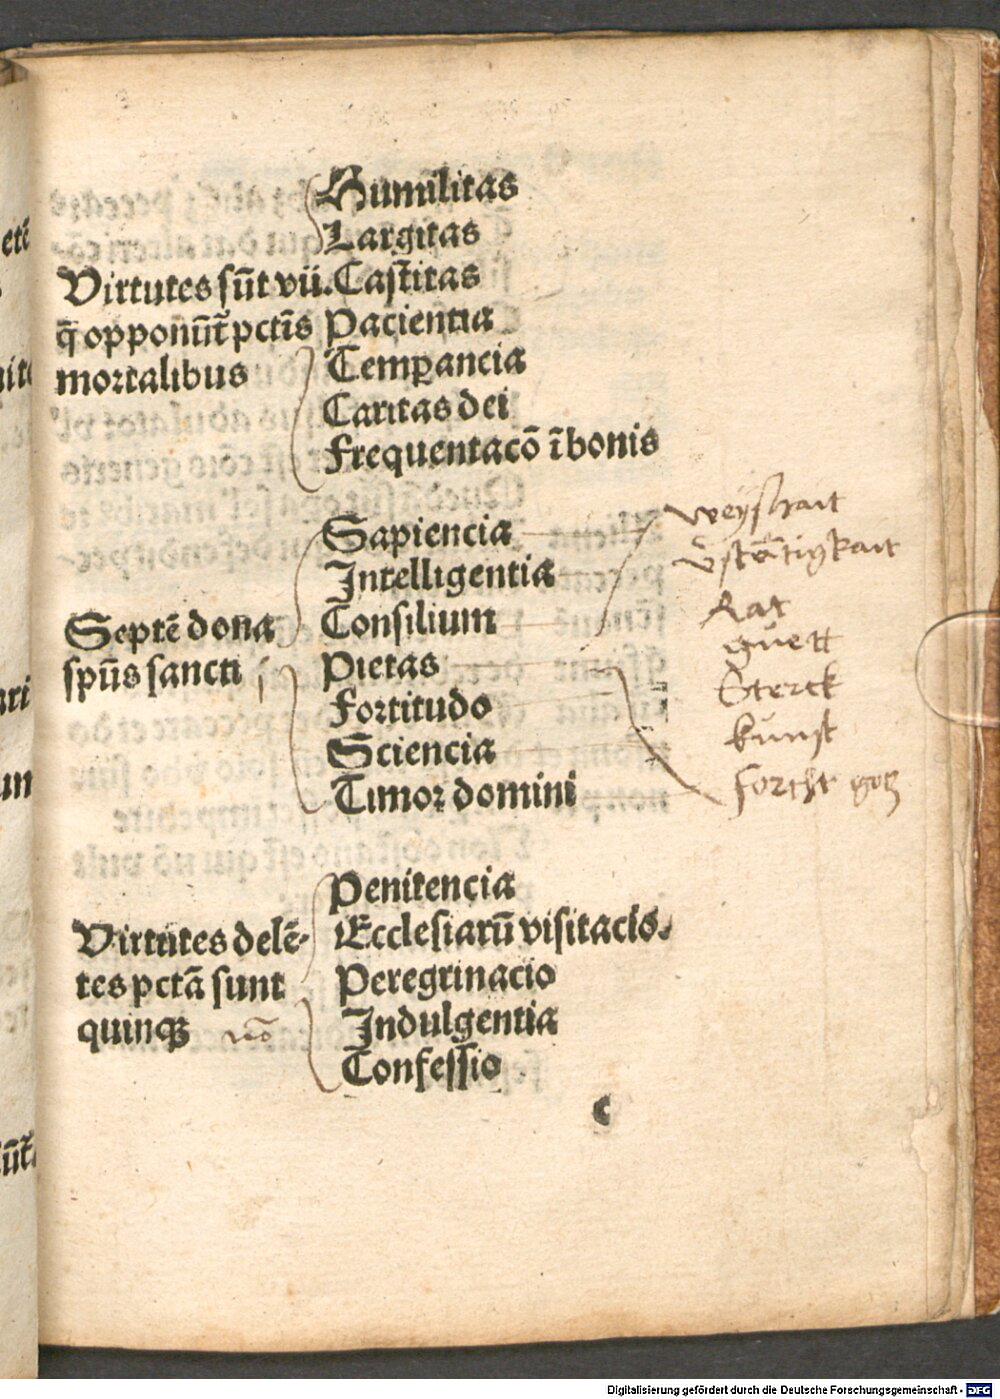 Humilitas
Largitas
Virtutes sūt vii. Castitas
q̄ opponūt᷑ pctīs Pacientia
mortalibus Temꝑancia
Caritas dei
Frequentacō ī bonis
Sapiencia weyshait
Intelligentia v̊stētigkait
Consilium Rat
Septē dona Pietas guett
spūs sancti Fortitudo Sterck
Sciencia kunst
Timor domini forcht gotz
Penitencia
Virtutes delē- Ecclesiarū visitacio.
tes pctā sunt Peregrinacio
quinqꝫ Indulgentia
Confessio
c
Digitalisierung gefördert durch die Deutsche Forschungsgemeinschaft - DFG